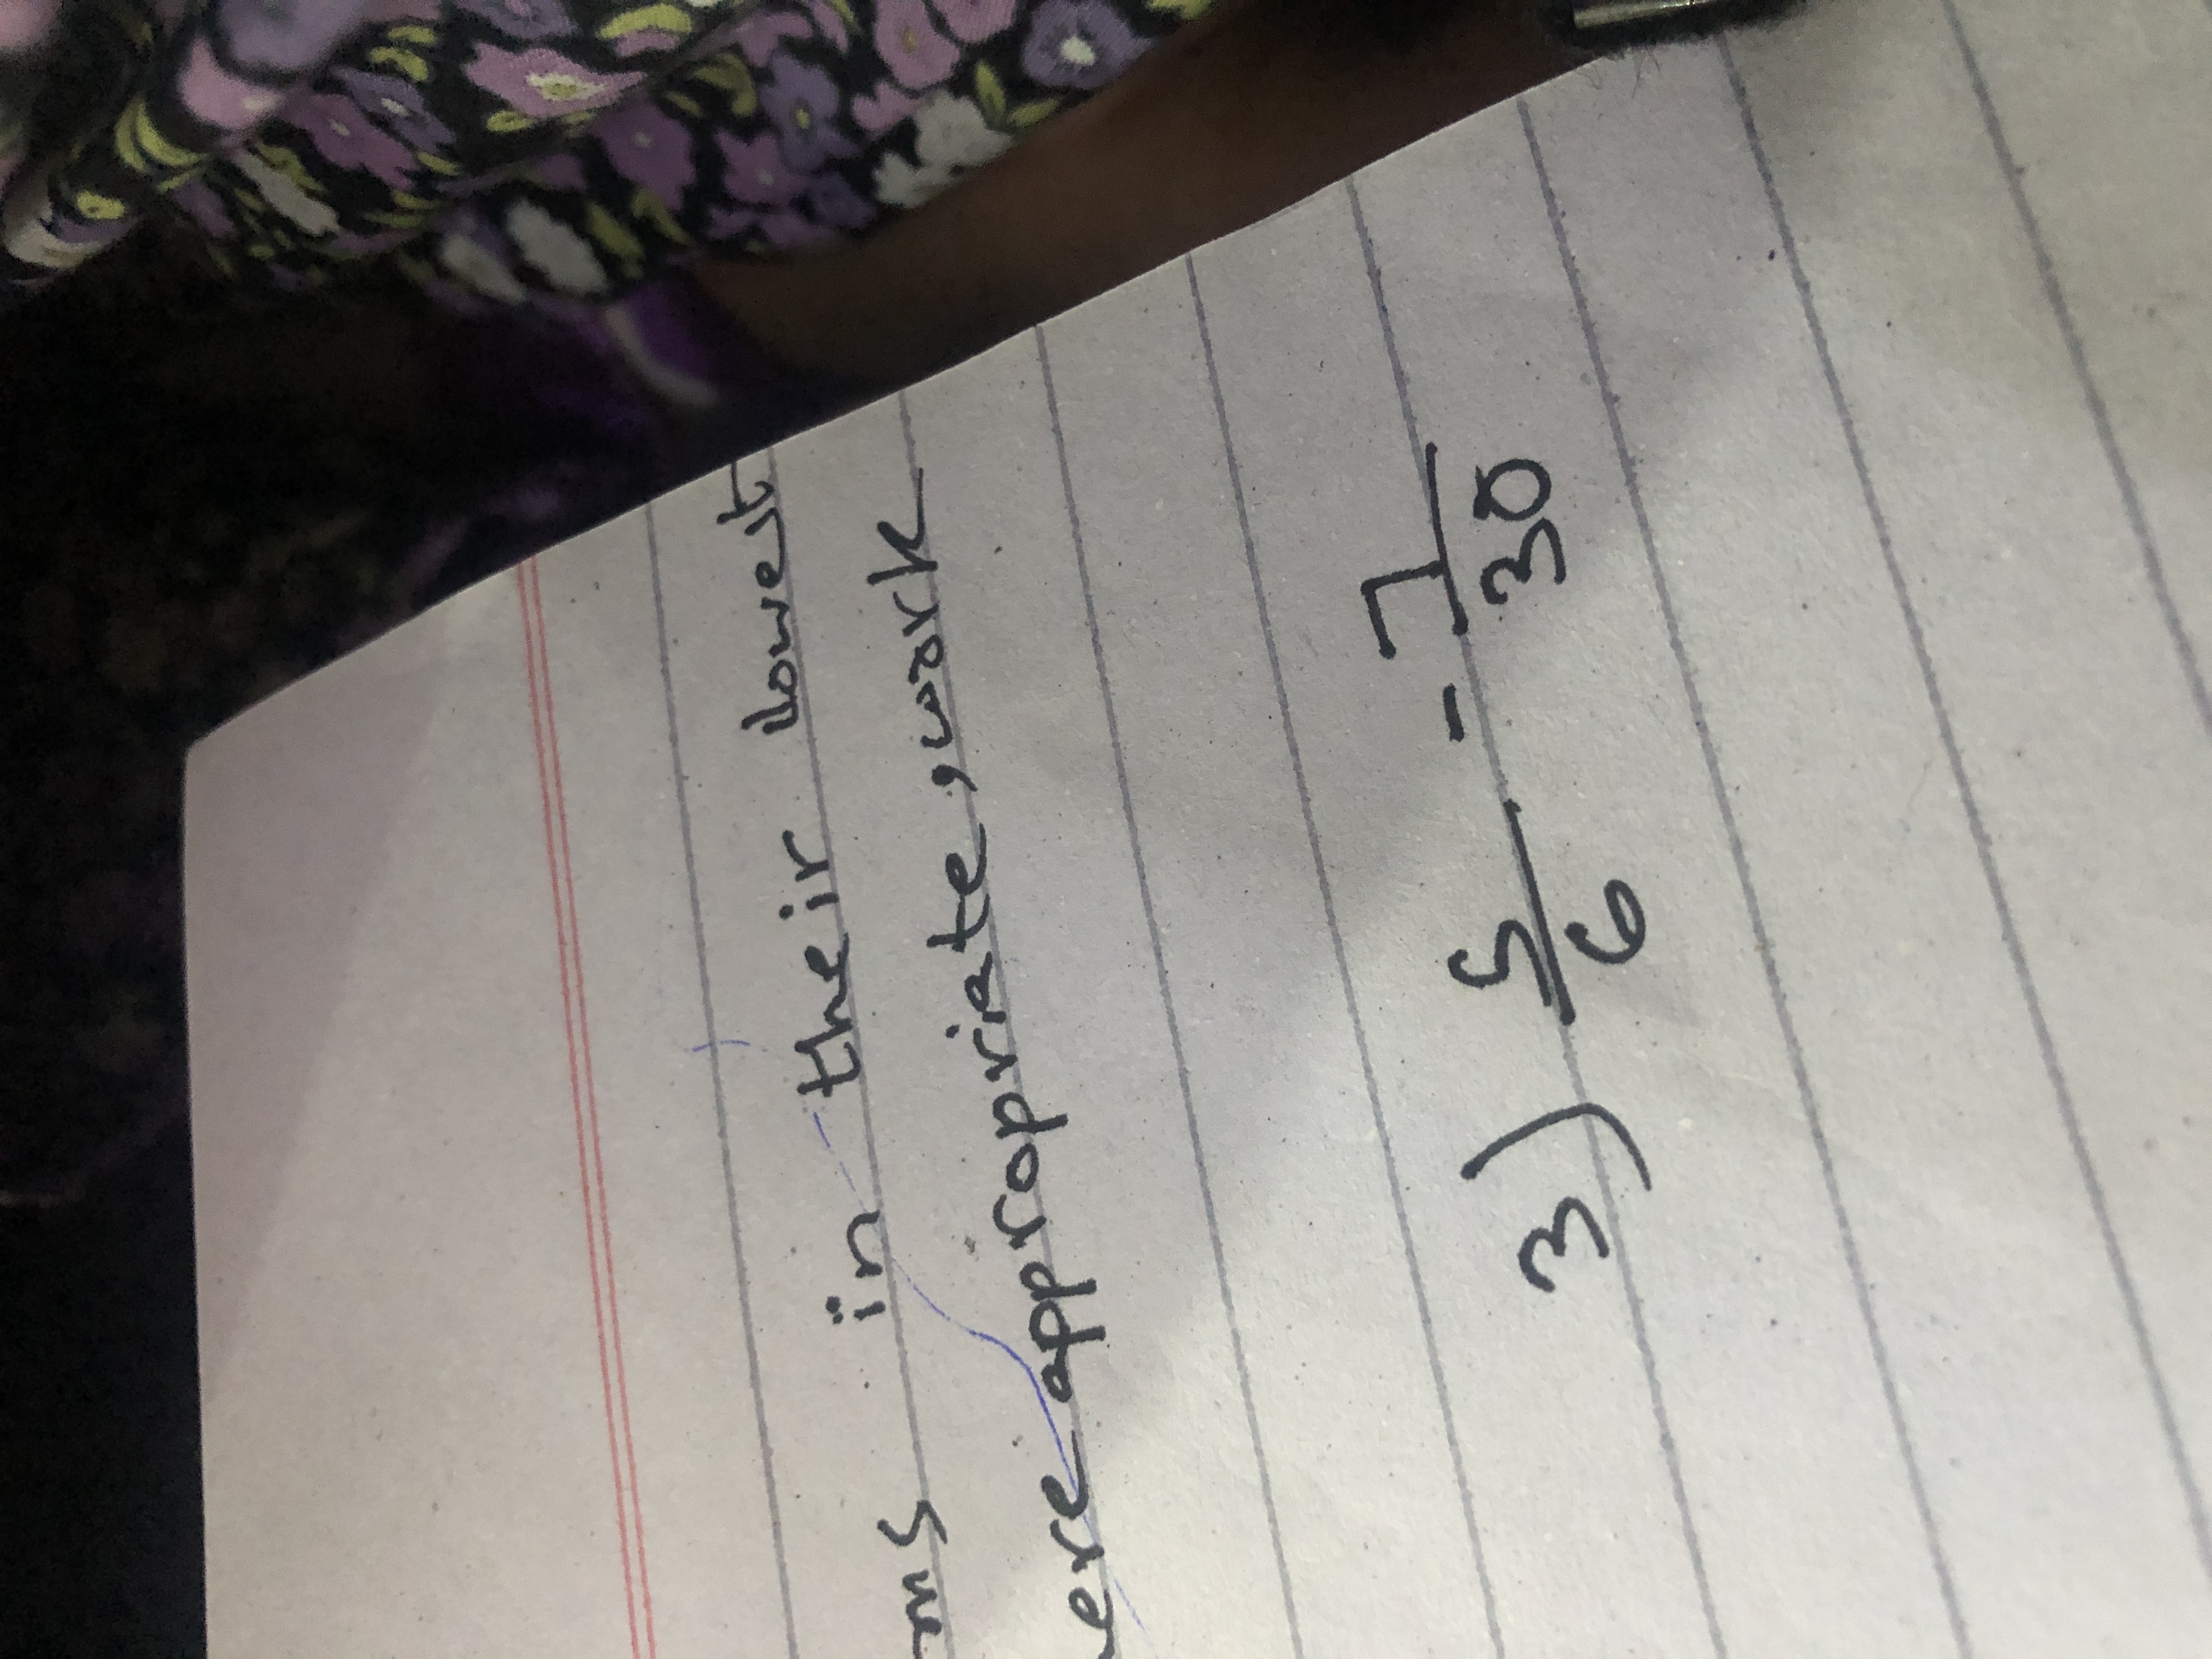 ms in their lowest
ere appropriate, work
3) 5/6 - 7/30